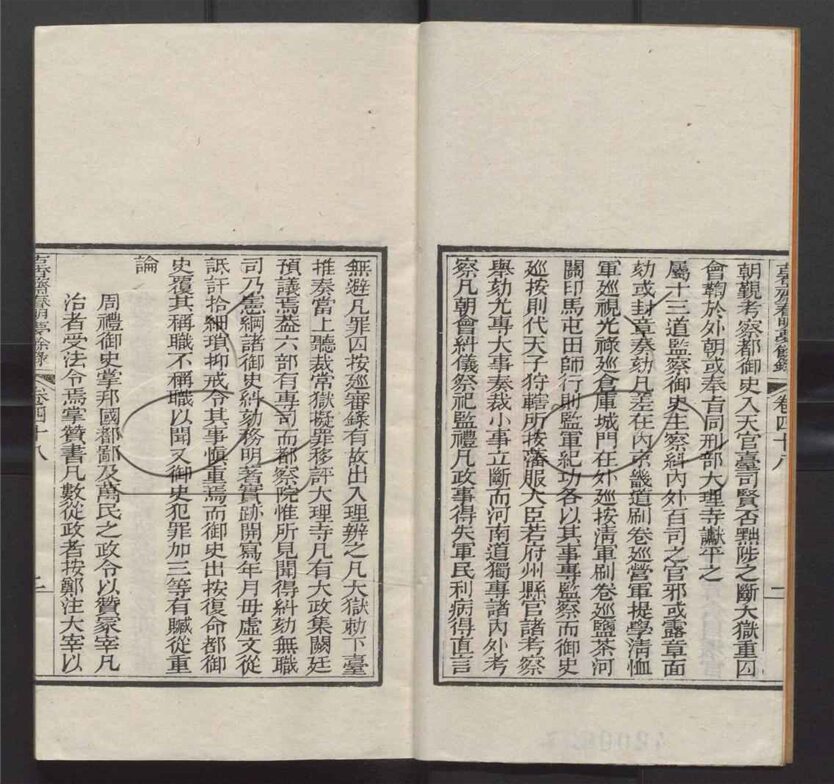 古香齋春明夢餘錄 卷四十八
朝觀考察都御史入天官臺司賢否黜陟之斷大獄重囚
會鞫於外朝或奉旨同刑部大理寺讞平之
屬十三道監察御史主察糾內外百司之官邪或露章面
劾或封章奏劾凡差在內京畿道刷卷巡營軍提學清恤
軍巡視光祿巡倉庫城門在外巡按清軍刷卷巡鹽茶河
關印馬屯田師行則監軍紀功各以其事專監察而御史
巡按則代天子狩轄所按藩服大臣若府州縣官諸考察
舉劾尤專大事奏裁小事立斷而河南道獨專諸內外考
察凡朝會糾儀祭祀監禮凡政事得失軍民利病得直言
無避凡罪囚按巡審錄有故出入理辨之凡大獄勅下臺
推奏當上聽裁常獄擬罪移評大理寺凡有大政集闕廷
預議焉葢六部有專司而都察院惟所見聞得糾劾無職
司乃憲綱諸御史糾劾務明著實跡開寫年月毋虛文從
詆訐拾細瑣抑戒令其事慎重焉而御史出按復命都御
史覆其稱職不稱職以聞又御史犯罪加三等有贓從重
論
周禮御史掌邦國都鄙及萬民之政令以贊冢宰凡
治者受法令焉掌贊書凡數從政者按鄭注大宰以
古香齋春明夢餘錄 卷四十八 二